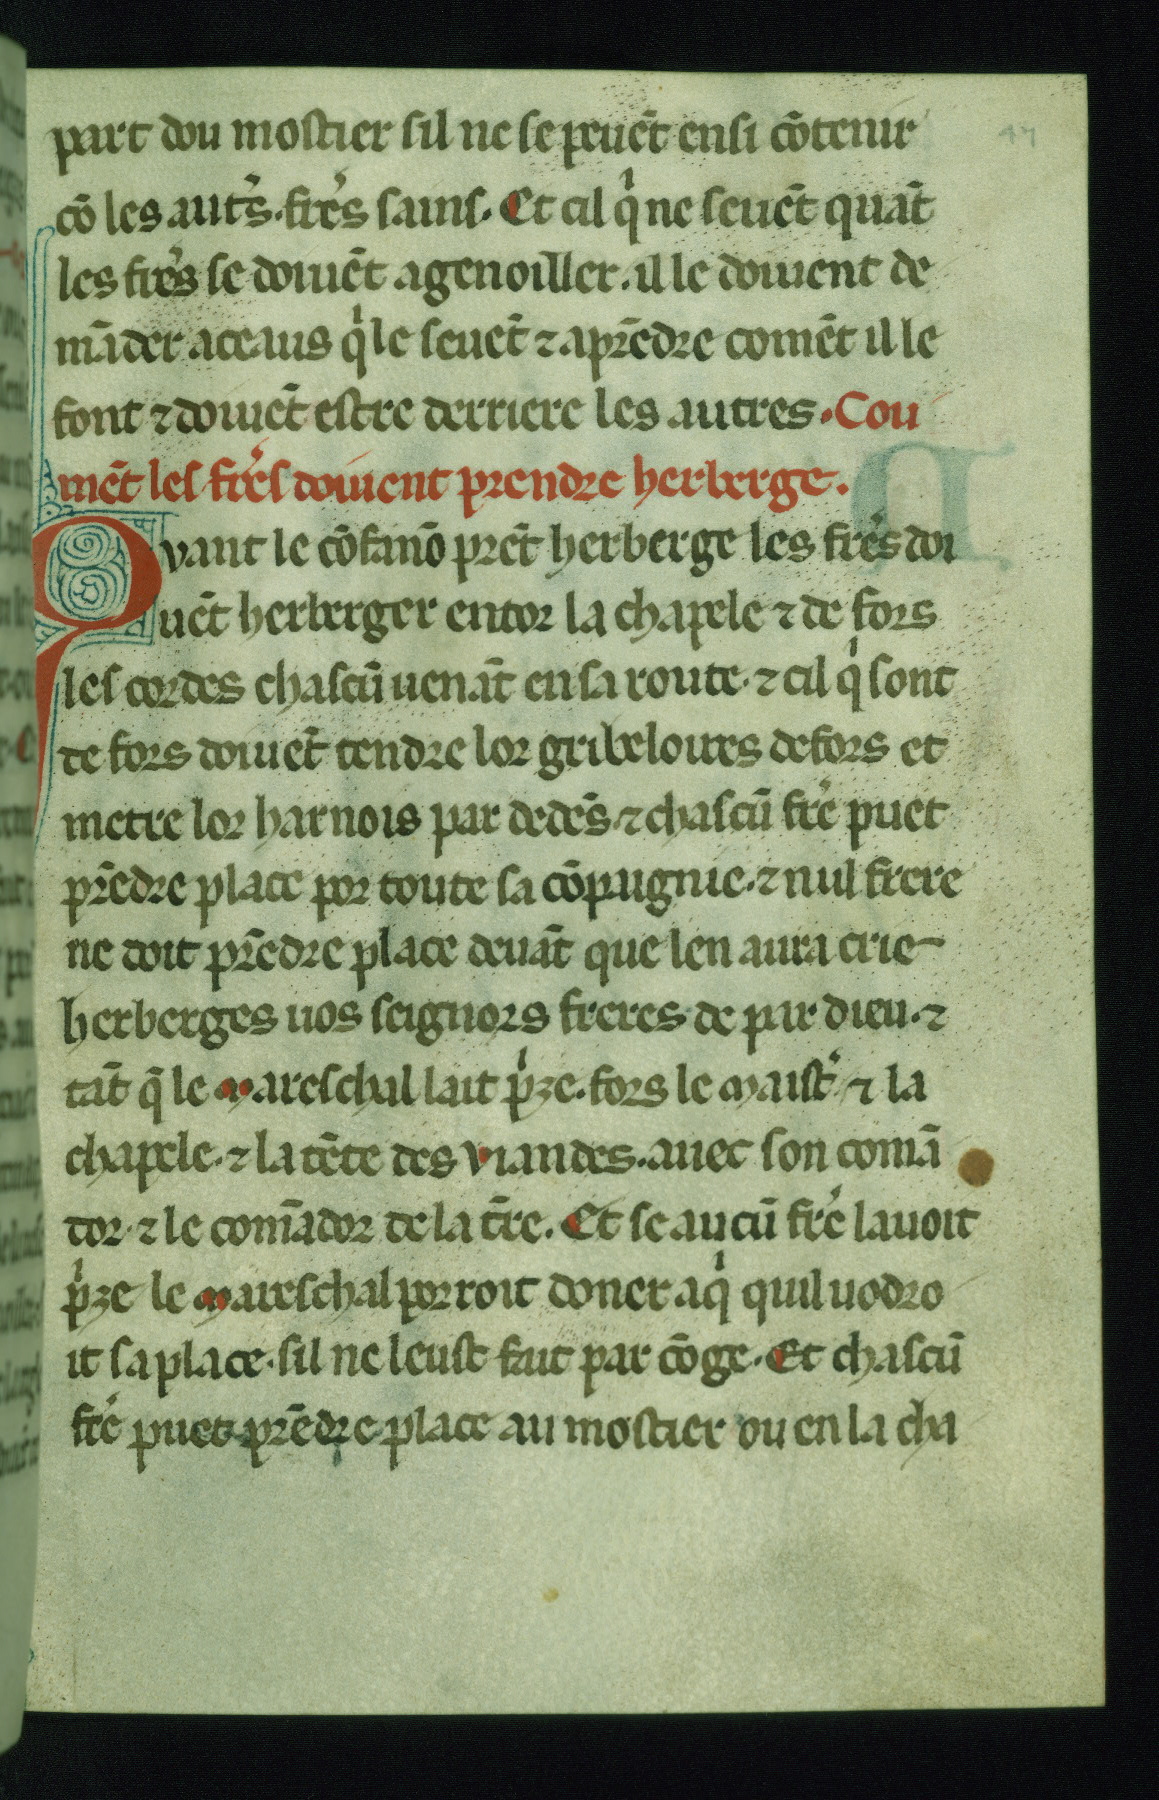 part dou mostier sil ne se peuēt ensi cōtenir
cō les autrs̾. frēs sains. Et cil q̍ ne seuēt quāt
les frēs se doiuēt agenoiller. il le doiuent de
māder aceaus q̍ le seuēt ⁊ aprēdre comēt il le
font ⁊ doiuēt estre derriere les autres. Cou
mēt les frēs doiuent prendre herberge.
Quant le cōfanō prēt herberge les frēs doi
uēt herberger entor la chapele ⁊ de fors
les cordes chascū uenāt en sa route. ⁊ cil q̍ sont
de fors doiuēt tendre lor gribeloures defors et
metre lor harnois par dedēs. ⁊ chascū frē puet
prēdre place por toute sa cōpaignie. ⁊ nul frere
ne doit prēdre place deuāt que len aura crie
herberges uos seignors freres de par dieu. ⁊
tāt q̄ le mareschal lait p̍ze. fors le maistr̾ ⁊ la
chapele. ⁊ la tēte des viandes. auec son comā
dor. ⁊ le comādor de la tr̄re. Et se aucū frē lauoit
p̍ze le mareschal porroit doner a q̍ quil uodro
it sa place. sil ne leust fait par cōge. Et chascū
frē puet prēdre place au mostier ou en la cha